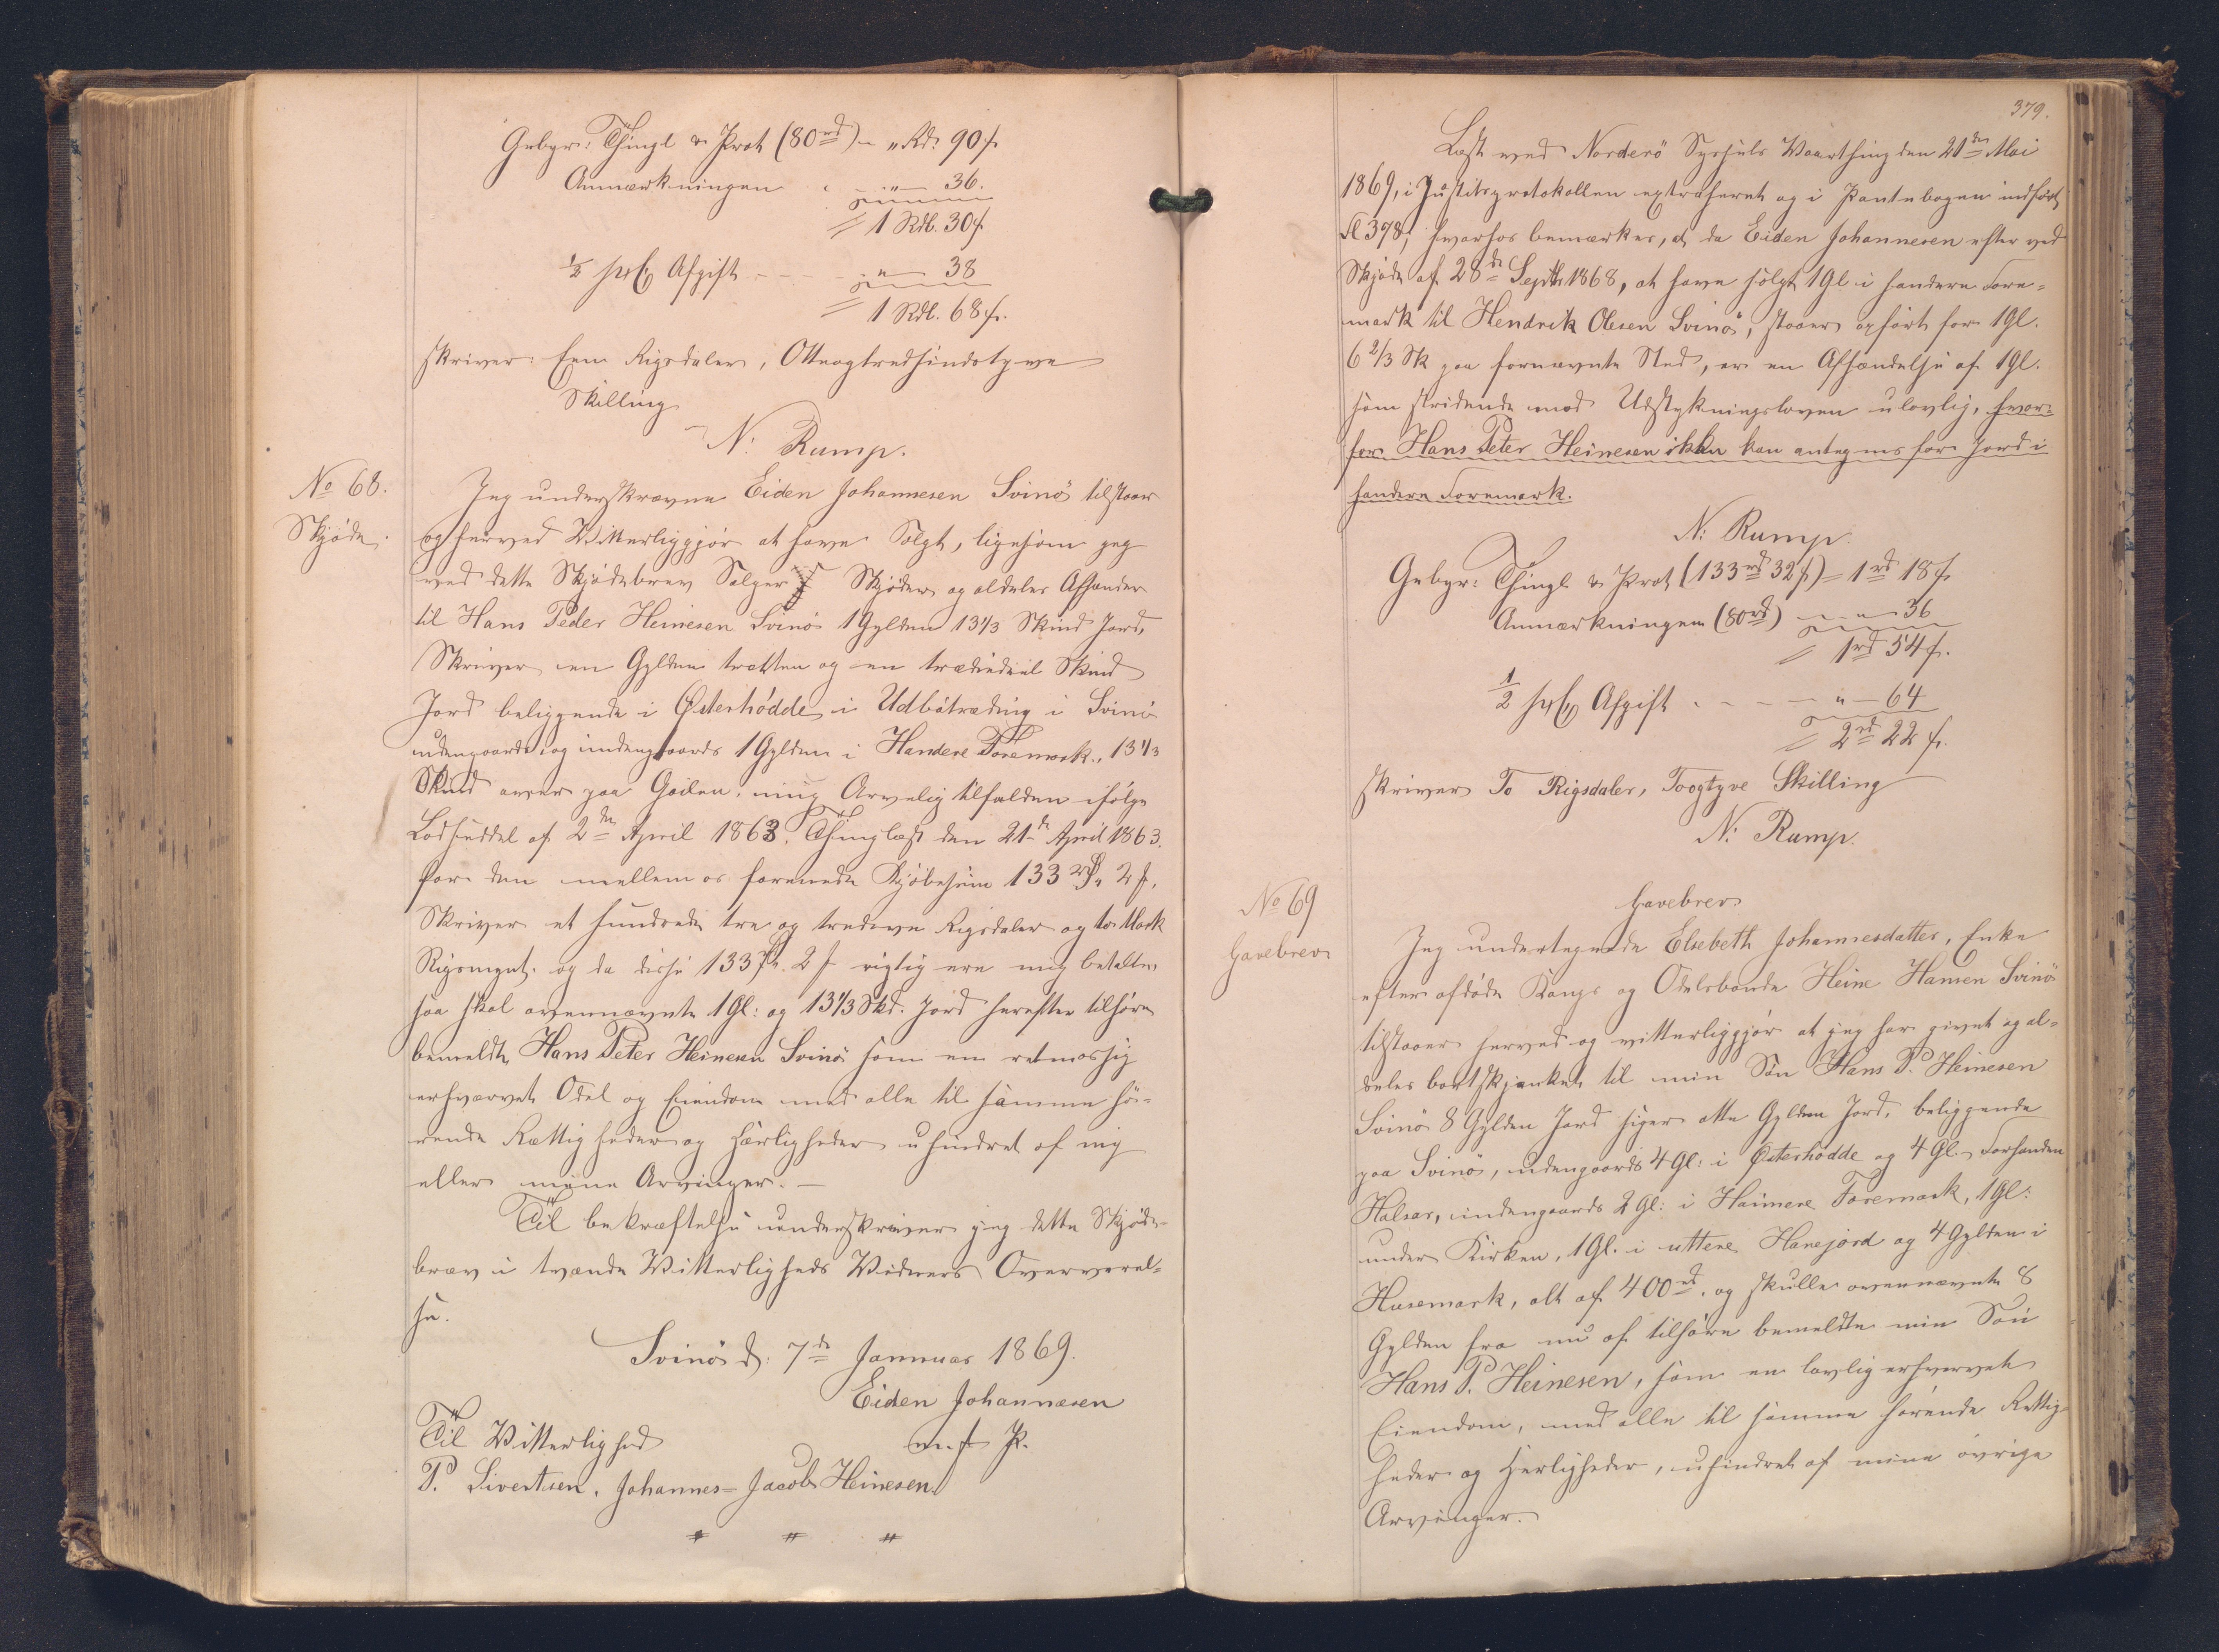 Gebyr: Thingl & Prot (80rd) = „ Rd. 90 f.
Anmærkningen „ — 36.
= 1 Rdl. 30 f
½ prC Afgift - - - „ — 38
= 1 Rdl. 68 f.
skriver: Een Rigsdaler, Otteogtredsindstyve
Skilling
N: Rump.
No 68.
Skjøde.
Jeg underskrevne Eiden Johannesen Svinö tilstaar
og herved Vitterliggjør at have Solgt, ligesom jeg
ved dette Skjødebrev Sælger Skjøder og aldeles Afhænder
til Hans Peder Heinesen Svinö 1 Gylden 13⅓ Skind Jord,
Skriver een Gylden tretten og en trediedeel Skind
Jord beliggende i Østerhödde i Udbötræding i Svinö
udengaards og indengaards 1 Gylden i Handere Foremark, 13⅓
Skind over paa Geilen, mig Arvelig tilfalden ifølge
Lodseddel af 2den April 1863. Thinglæst den 21de April 1863.
for den mellem os forenede Kjøbesum 133 Rd. 2 f,
Skriver et hundrede tre og tredeve Rigsdaler og to Mark
Rigsmynt. og da disse 133 Rd. 2 f rigtig ere mig betalte,
saa skal ovennævnte 1 Gl: og 13⅓ Skd. Jord herefter tilhøre
bemeldte Hans Peter Heinesen Svinö som en retmæssig
erhvervet Odel og Eiendom med alle til samme hö-
rende Rettigheder og Herligheder uhindret af mig
eller mine Arvinger. —
Til bekræftelse underskriver jeg dette Skjøde-
brev i tvende Vitterligheds Vidners Overværel-
se.
Svinö d. 7de Januar 1869.
Eiden Johannesen
m. f. P.
Til Vitterlighed
P. Sivertsen. Johannes = Jacob Heinesen.
379.
Læst ved Norderö Syssels Vaarthing den 21de Mai
1869, i Justitsprotokollen extraheret og i Pantebogen indført
Fl 378; hvorhos bemærkes, at da Eiden Johannesen efter ved
Skjøde af 28de Septbr 1868, at have solgt 1 Gl i Handere Fore-
mark til Hendrik Olesen Svinö, staaer opført for 1 Gl.
6 2/3 Sk paa fornævnte Sted, er en Afhændelse af 1 Gl.
som stridende mod Udstykningsloven ulovlig, hvor-
for Hans Peter Heinesen ikke kan antegnes for Jord i
Handere Foremark.
N: Rump.
Gebyr: Thingl & Prot (133 rd 32 f) = 1 rd 18 f
Anmærkningen (80 rd) - „ — 36
= 1 rd 54 f.
½ prC Afgift - - - - „ — 64
= 2 rd 22 f.
skriver To Rigsdaler, Toogtyve Skilling
N: Rump.
No 69
Gavebrev
Gavebrev
Jeg undertegnede Elsebeth Johannesdatter, Enke
efter afdøde Kongs og Odelsbonde Heine Hansen Svinö
tilstaaer herved og vitterliggjør at jeg har givet og al-
deles bortskjenket til min Sön Hans P. Heinesen
Svinö 8 Gylden Jord siger otte Gylden Jord, beliggende
paa Svinö, udengaards 4 Gl: i Østerhödde og 4 Gl. Forhanden
Halsar, indengaards 2 Gl: i Haimere Foremark, 1 Gl:
under Kirken, 1 Gl. i uttere Hanejord og 4 Gylden i
Husemark, alt af 400 rd, og skulle ovennævnte 8
Gylden fra nu af tilhøre bemeldte min Sön
Hans P. Heinesen, som en lovlig erhvervet
Eiendom, med alle til samme hørende Rettig-
heder og Herligheder, uhindret af mine övrige
Arvinger.